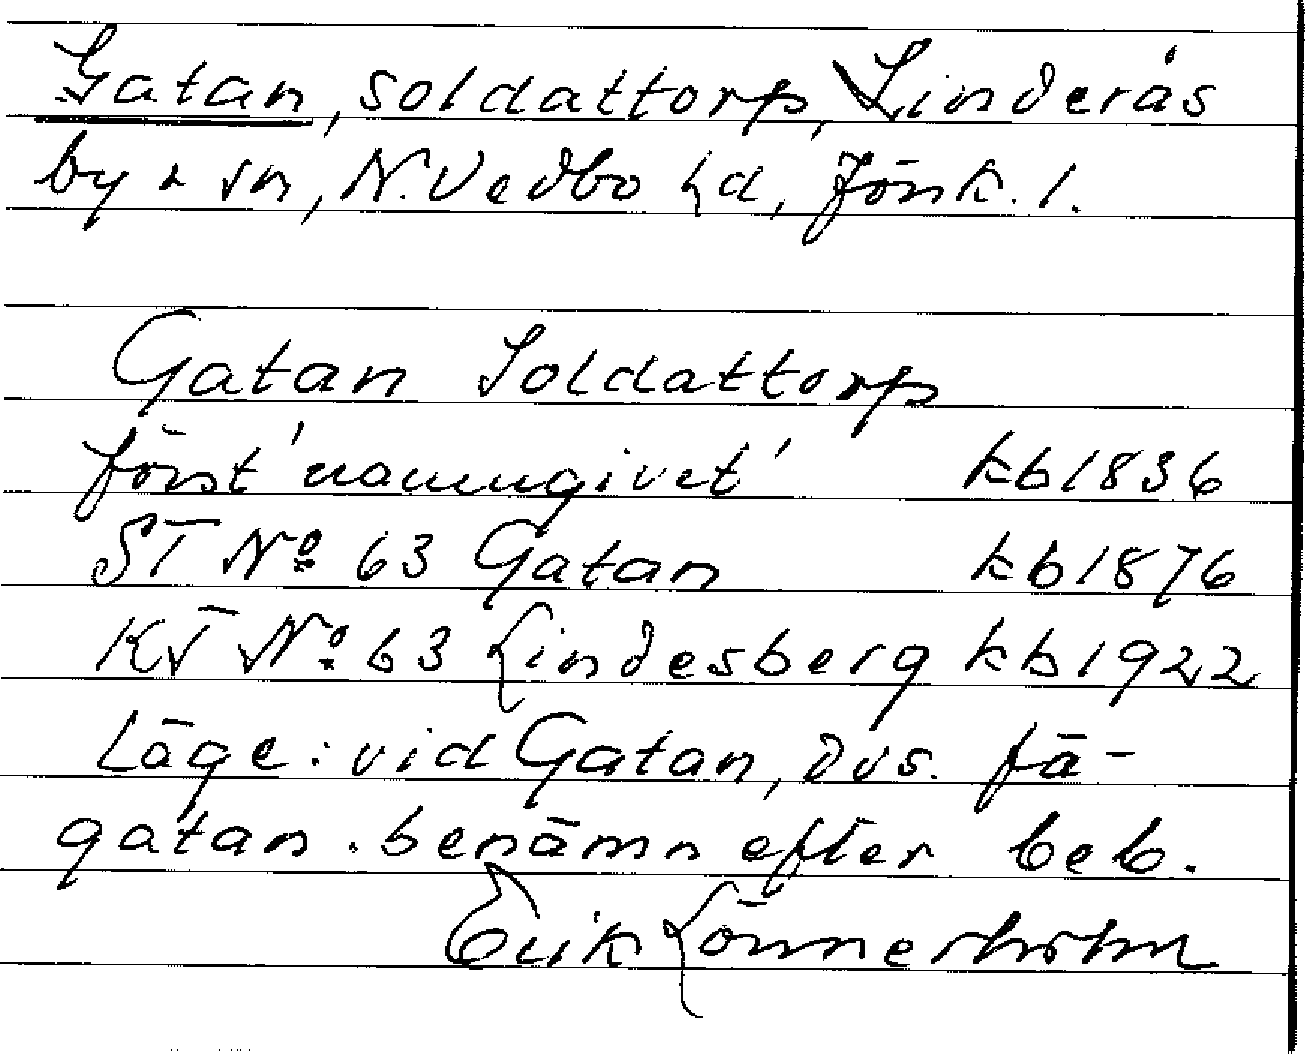 Gatan, soldattorp, Linderås
by & sn, N. Vedbo hd, Jönk. l.
Gatan Soldattorp
först 'namngivet' kb 1836
ST Nº 63 Gatan kb 1876
KT Nº 63 Lindesberg kb 1922
Läge: vid Gatan, dvs. fä-
gatan. benämn efter beb.
Erik Lönnerholm